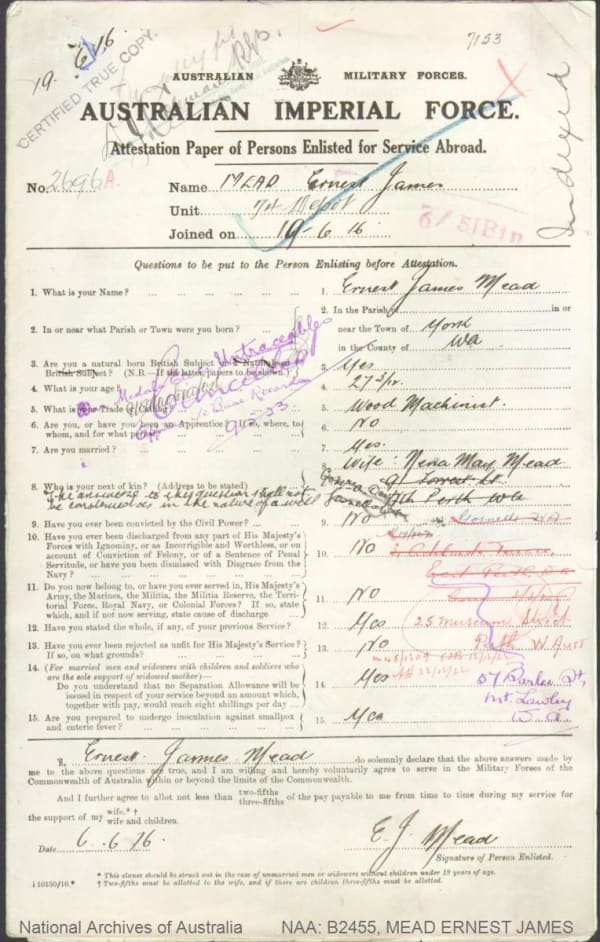 19.6.16
7153
CERTIFIED TRUE COPY.
AUSTRALIAN MILITARY FORCES.
AUSTRALIAN IMPERIAL FORCE.
Attestation Paper of Persons Enlisted for Service Abroad.
Indexed
No. 2696A. Name MEAD Ernest James
Unit 74 Depot
Joined on 19.6.16
6/51Btn
Questions to be put to the Person Enlisting before Attestation.
1. What is your Name? 1. Ernest James Mead
2. In or near what Parish or Town were you born? 2. In the Parish of in or
near the Town of York
in the County of WA
3. Are you a natural born British Subject or a Naturalized
British Subject? (N.B.—If the latter, papers to be shown.) 3. Yes
4. What is your age? 4. 27 3/12
5. What is your Trade or Calling? 5. Wood Machinist.
6. Are you, or have you been an Apprentice? If so, where, to
whom, and for what period? 6. No
7. Are you married? 7. Yes.
8. Who is your next of kin? (Address to be stated) 8. Wife: Nena May Mead
91 Forrest St
Nth Perth WA
The answering to this question shall not
be construed as in the nature of a will
Untraceable
Cancelled
9. Have you ever been convicted by the Civil Power? 9. No
10. Have you ever been discharged from any part of His Majesty's
Forces with Ignominy, or as Incorrigible and Worthless, or on
account of Conviction of Felony, or of a Sentence of Penal
Servitude, or have you been dismissed with Disgrace from the
Navy? 10. No
East Perth W.A.
11. Do you now belong to, or have you ever served in, His Majesty's
Army, the Marines, the Militia, the Militia Reserve, the Terri-
torial Force, Royal Navy, or Colonial Forces? If so, state
which, and if not now serving, state cause of discharge 11. No
12. Have you stated the whole, if any, of your previous Service? 12. Yes
25 Museum Street
Perth W. Aust
13. Have you ever been rejected as unfit for His Majesty's Service?
If so, on what grounds? 13. No
14. (For married men and widowers with children and soldiers who
are the sole support of widowed mother)—
Do you understand that no Separation Allowance will be
issued in respect of your service beyond an amount which,
together with pay, would reach eight shillings per day 14. Yes
57 Barlee St,
Mt. Lawley
W.A.
15. Are you prepared to undergo inoculation against smallpox
and enteric fever? 15. Yes
I, Ernest James Mead do solemnly declare that the above answers made by
me to the above questions are true, and I am willing and hereby voluntarily agree to serve in the Military Forces of the
Commonwealth of Australia within or beyond the limits of the Commonwealth.
And I further agree to allot not less than two-fifths three-fifths of the pay payable to me from time to time during my service for
the support of my wife.*† wife and children.
Date 6.6.16
E. J. Mead
Signature of Person Enlisted.
* This clause should be struck out in the case of unmarried men or widowers without children under 18 years of age.
† Two-fifths must be allotted to the wife, and if there are children three-fifths must be allotted.
National Archives of Australia NAA: B2455, MEAD ERNEST JAMES